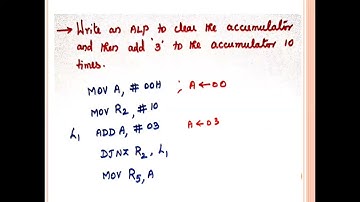 → Write an ALP to clear the accumulator
and then add '3' to the accumulator 10
times.
MOV A, # 00H ; A ← 00
MOV R2, # 10
L1 ADD A, # 03 A ← 03
DJNZ R2, L1
MOV R5, A